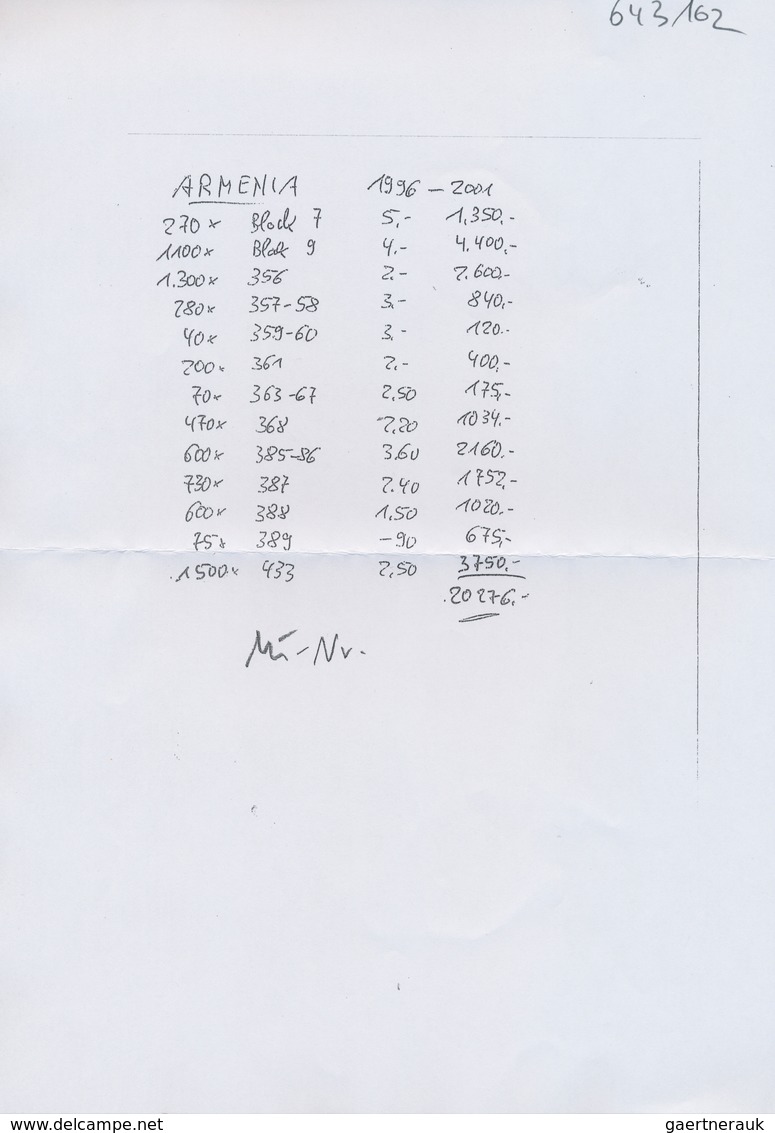 643/162
ARMENIA 1996 - 2001
270x Block 7 5,- 1,350.-
1100x Block 9 4.- 4.400,-
1.300x 356 2.- 2.600.-
280x 357-58 3.- 840,-
40x 359-60 3.- 120.-
200x 361 2.- 400,-
70x 363-67 2,50 175,-
470x 368 2,20 1034.-
600x 385-86 3.60 2160.-
730x 387 2.40 1752.-
600x 388 1,50 1020.-
75x 389 -90 675,-
1500x 433 2,50 3750.-
20276.-
Mi-Nr.
www.delcampe.net
gaertnerauk